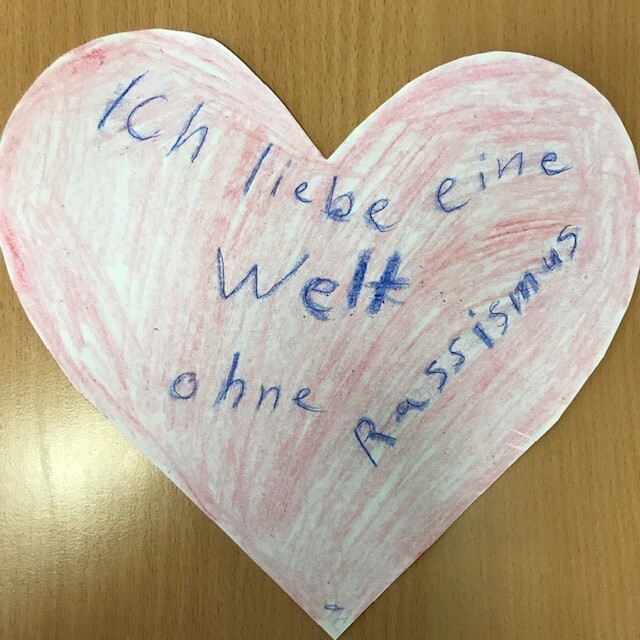 Ich liebe eine
Welt
ohne Rassismus